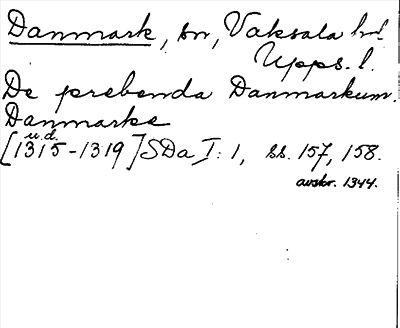 Danmark, sn, Vaksala hd.
Upps. l.
De prebenda Danmarkum.
Danmarke
u.d.
[1315-1319] SDa I: 1, ss. 157, 158.
avskr. 1344.